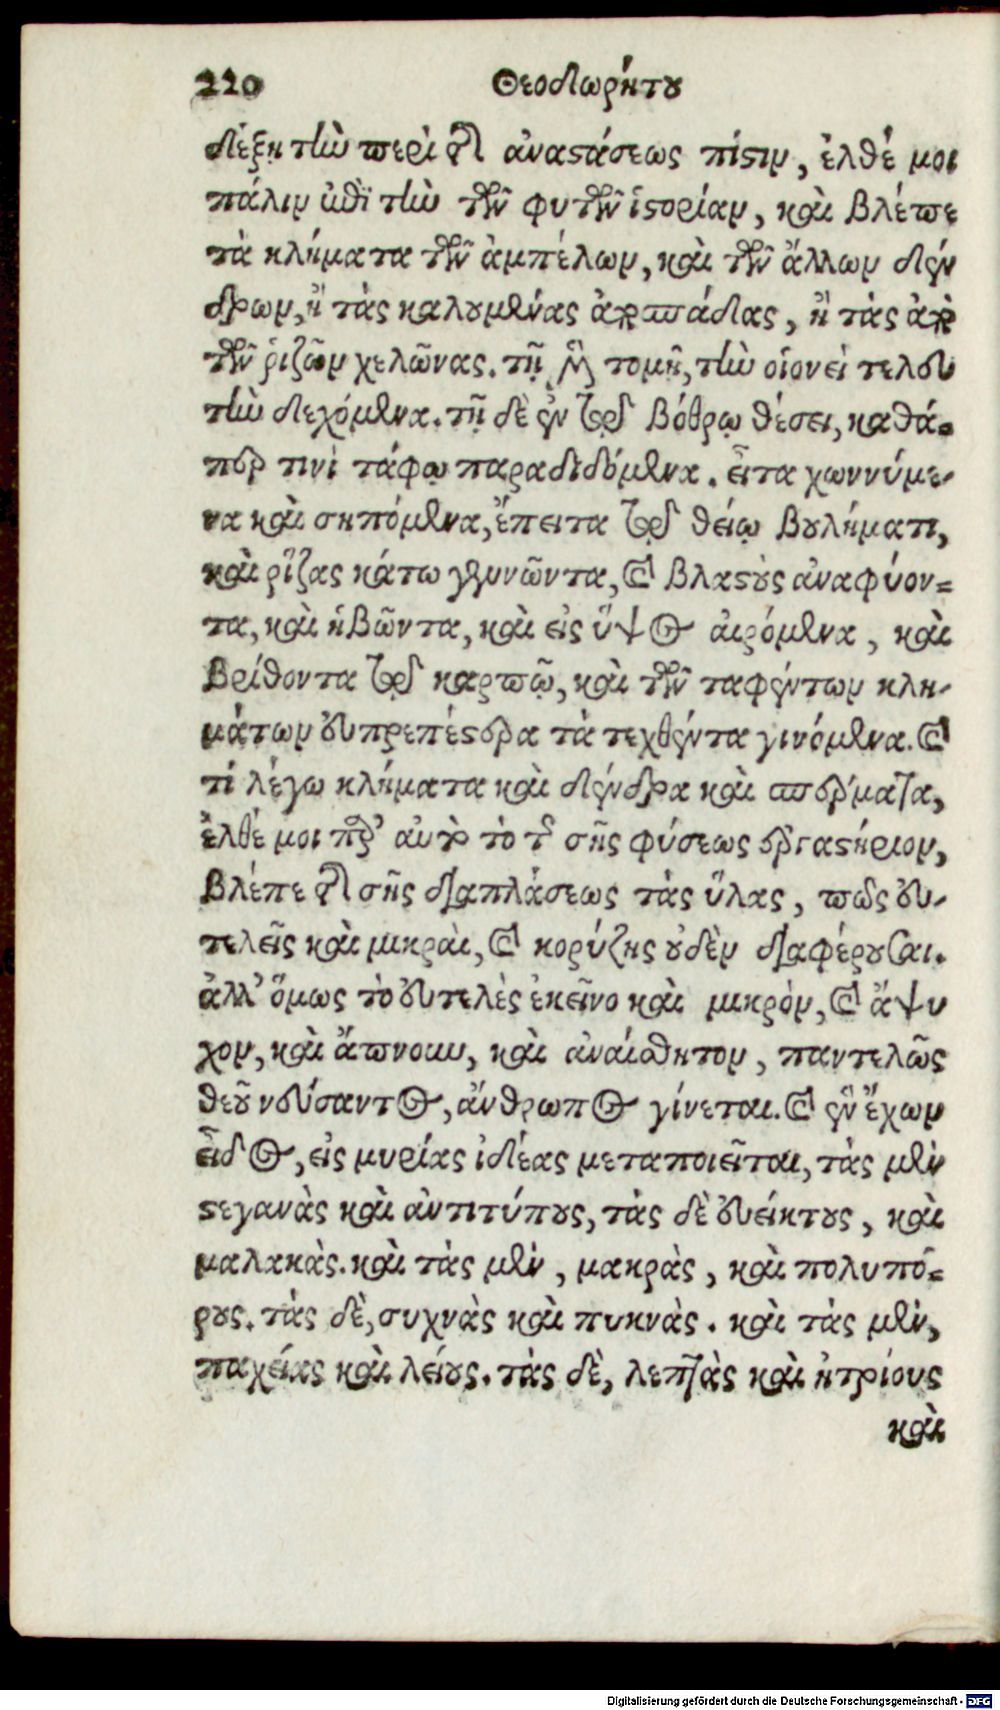 220 Θεοδωρήτου
δέξῃ τὴν περὶ τῆς ἀναστάσεως πίστιν, ἐλθέ μοι
πάλιν ἐπὶ τὴν τῶν φυτῶν ἱστορίαν, καὶ βλέπε
τὰ κλήματα τῶν ἀμπέλων, καὶ τῶν ἄλλων δέν
δρων, ἢ τὰς καλουμένας ἀποσπάδας, ἢ τὰς ἀπὸ
τῶν ῥιζῶν χελῶνας. τῇ μὲν τομῇ, τὴν οἱονεὶ τελευ
τὴν δεχόμενα. τῇ δὲ ἐν τῷ βόθρῳ θέσει, καθά-
περ τινὶ τάφῳ παραδιδόμενα. εἶτα χωννύμε-
να καὶ σηπόμενα, ἔπειτα τῷ θείῳ βουλήματι,
καὶ ῥίζας κάτω γεννῶντα, καὶ βλαστοὺς ἀναφύον-
τα, καὶ ἡβῶντα, καὶ εἰς ὕψος αἰρόμενα, καὶ
βρίθοντα τῷ καρπῷ, καὶ τῶν ταφέντων κλη-
μάτων εὐπρεπέστερα τὰ τεχθέντα γινόμενα. καὶ
τί λέγω κλήματα καὶ δένδρα καὶ σπέρματα,
ἐλθέ μοι πρὸς αὐτὸ τὸ τῆς σῆς φύσεως ἐργαστήριον,
βλέπε τῆς σῆς διαπλάσεως τὰς ὕλας, πῶς εὐ-
τελεῖς καὶ μικραὶ, καὶ κορύζης οὐδὲν διαφέρουσαι.
ἀλλ' ὅμως τὸ εὐτελὲς ἐκεῖνο καὶ μικρὸν, καὶ ἄψυ
χον, καὶ ἄπνουν, καὶ ἀναίσθητον, παντελῶς
θεοῦ νεύσαντος, ἄνθρωπος γίνεται. καὶ ἓν ἔχων
εἶδος, εἰς μυρίας ἰδέας μεταποιεῖται, τὰς μὲν
στεγανὰς καὶ ἀντιτύπους, τὰς δὲ εὐείκτους, καὶ
μαλακὰς. καὶ τὰς μὲν, μακρὰς, καὶ πολυπό-
ρους. τὰς δὲ, συχνὰς καὶ πυκνὰς. καὶ τὰς μὲν,
παχείας καὶ λείους. τὰς δὲ, λεπτὰς καὶ ἠτρίους
καὶ
Digitalisierung gefördert durch die Deutsche Forschungsgemeinschaft - DFG